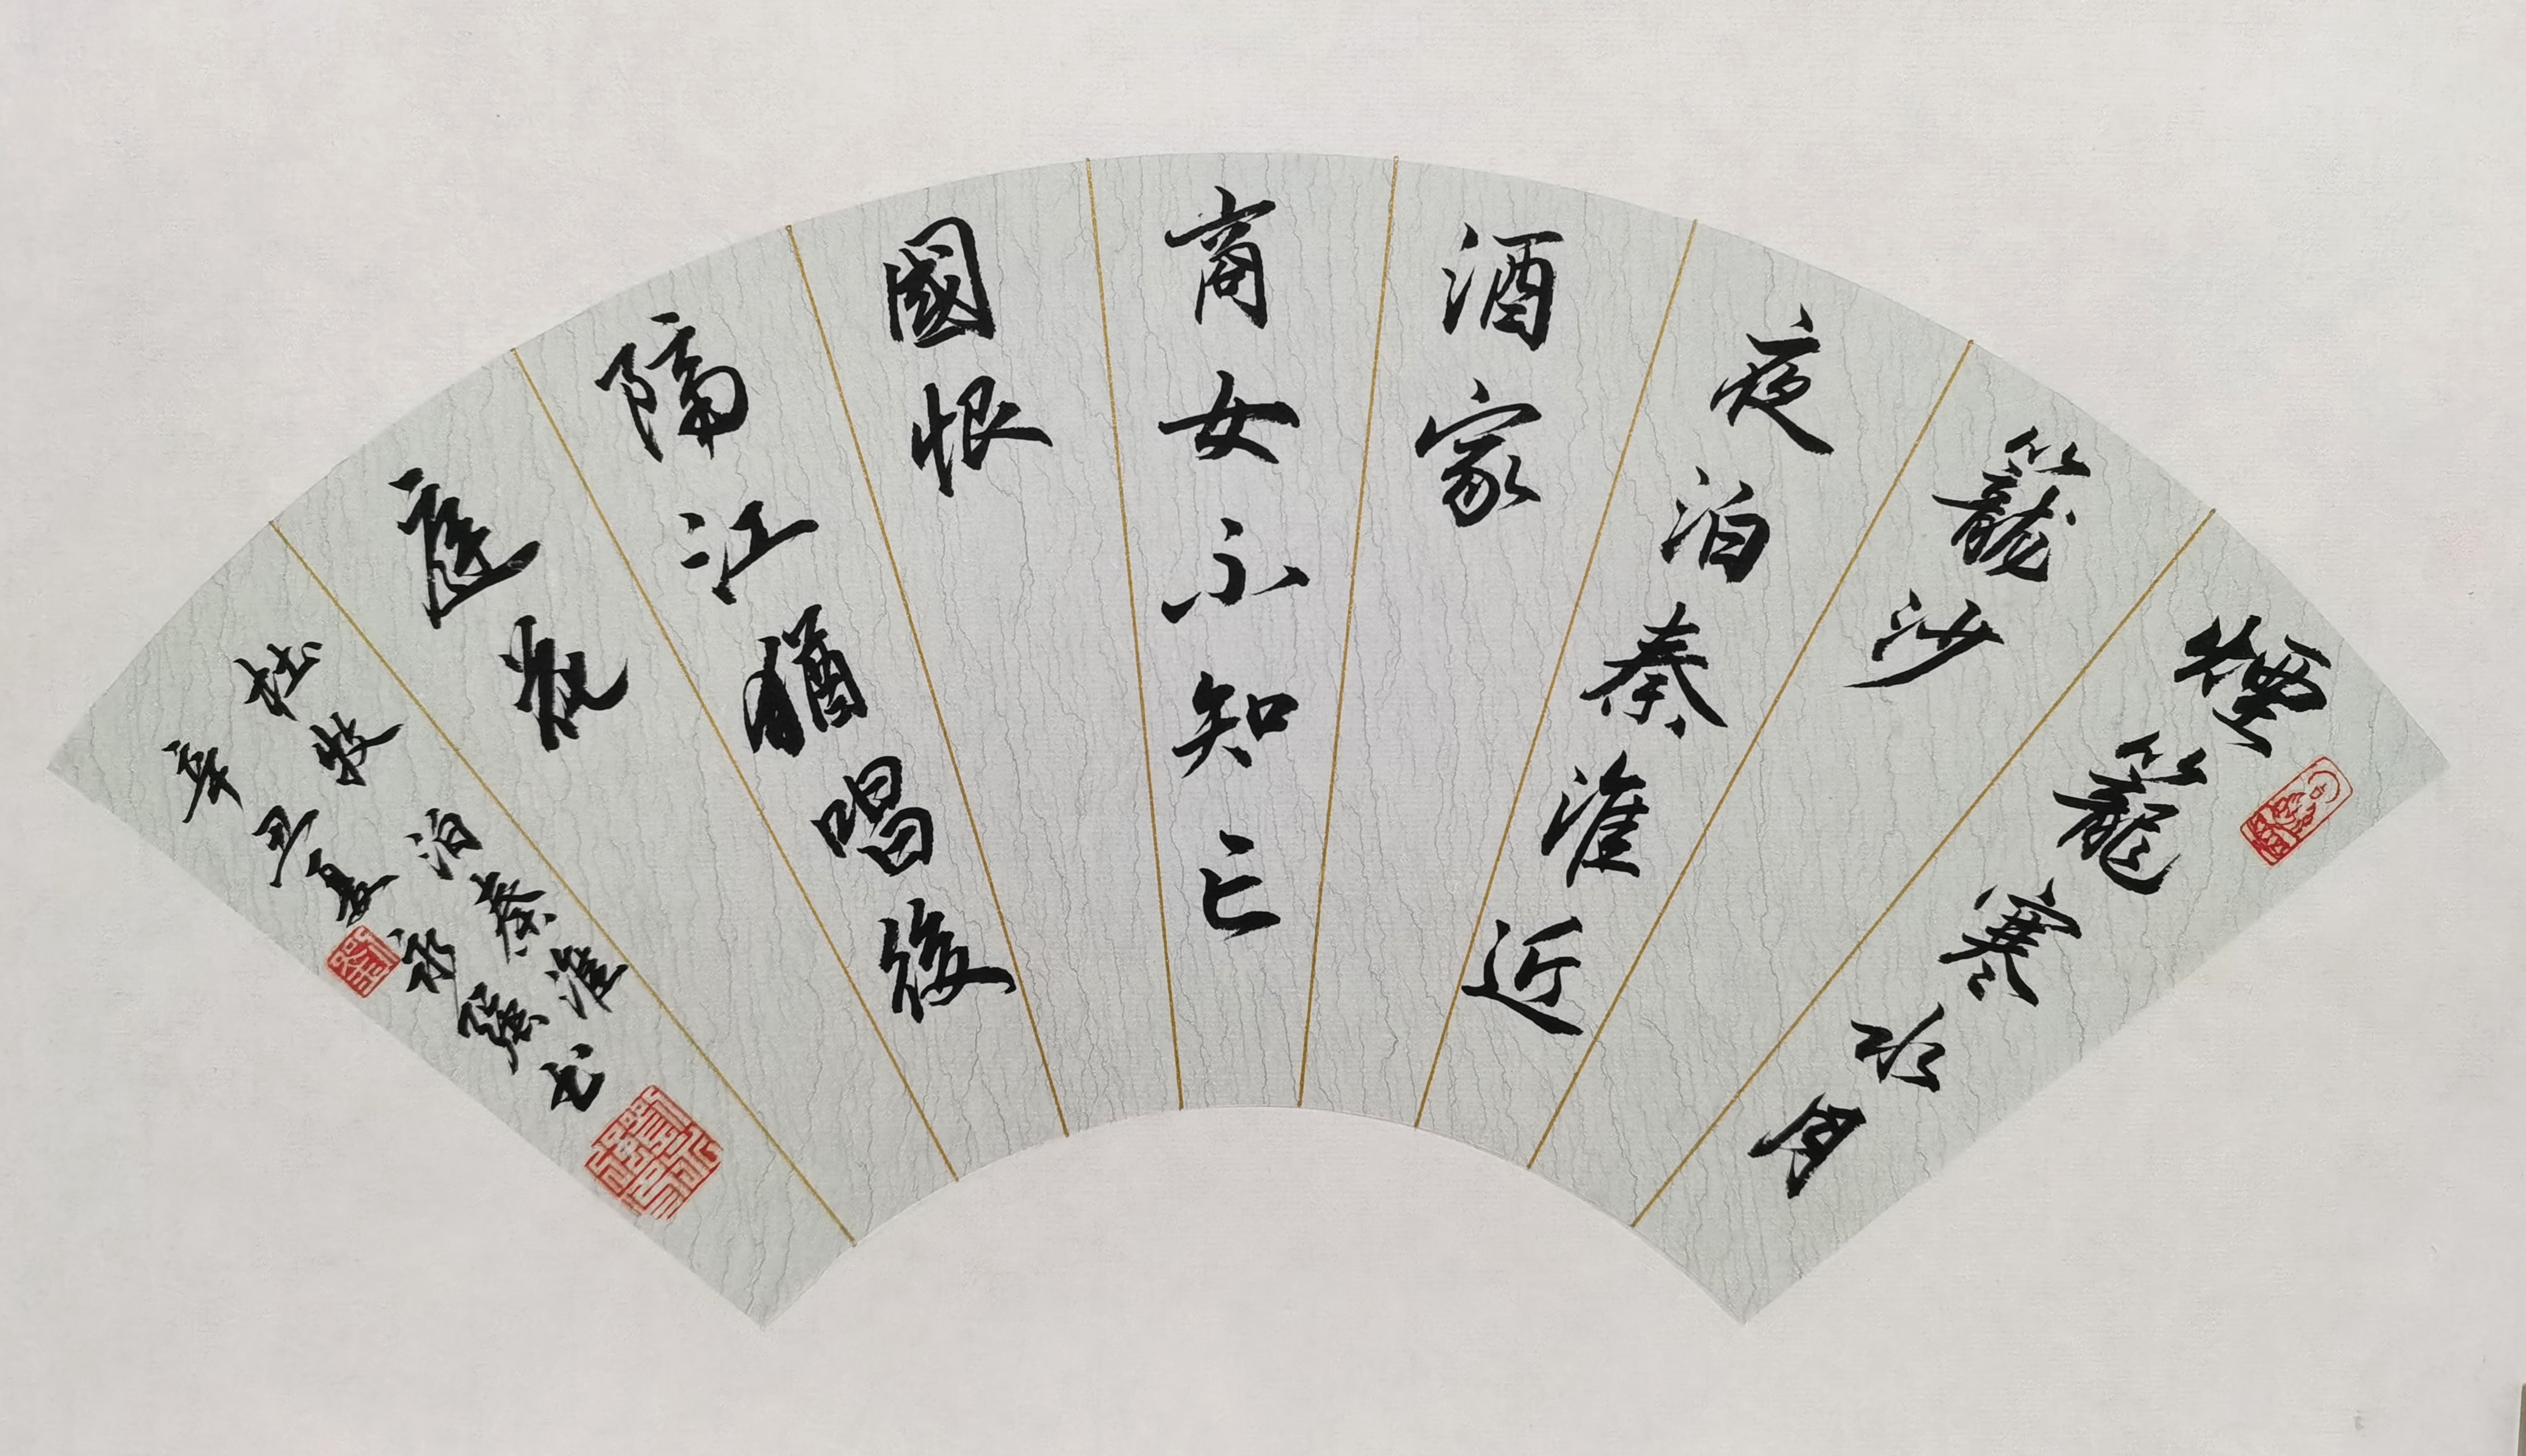 煙籠寒水月
籠沙
夜泊秦淮近
酒家
商女不知亡
國恨
隔江猶唱後
庭花
杜牧泊秦淮
辛丑夏永强书